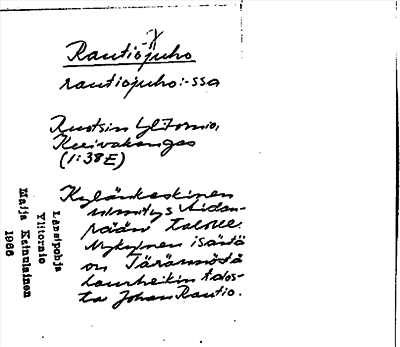 Rautiojuho
rautiojuho:-ssa
Ruotsin Ylitornio,
Keeivakangas
(1:38E)
Kylänkeskinen
nimitys Aidan-
pään talolle.
Nykyinen isäntä
on Tärännöstä
Lauheikin talos-
ta Johan Rautio.
Länsipohja
Ylitornio
Maija Keinulainen
1966